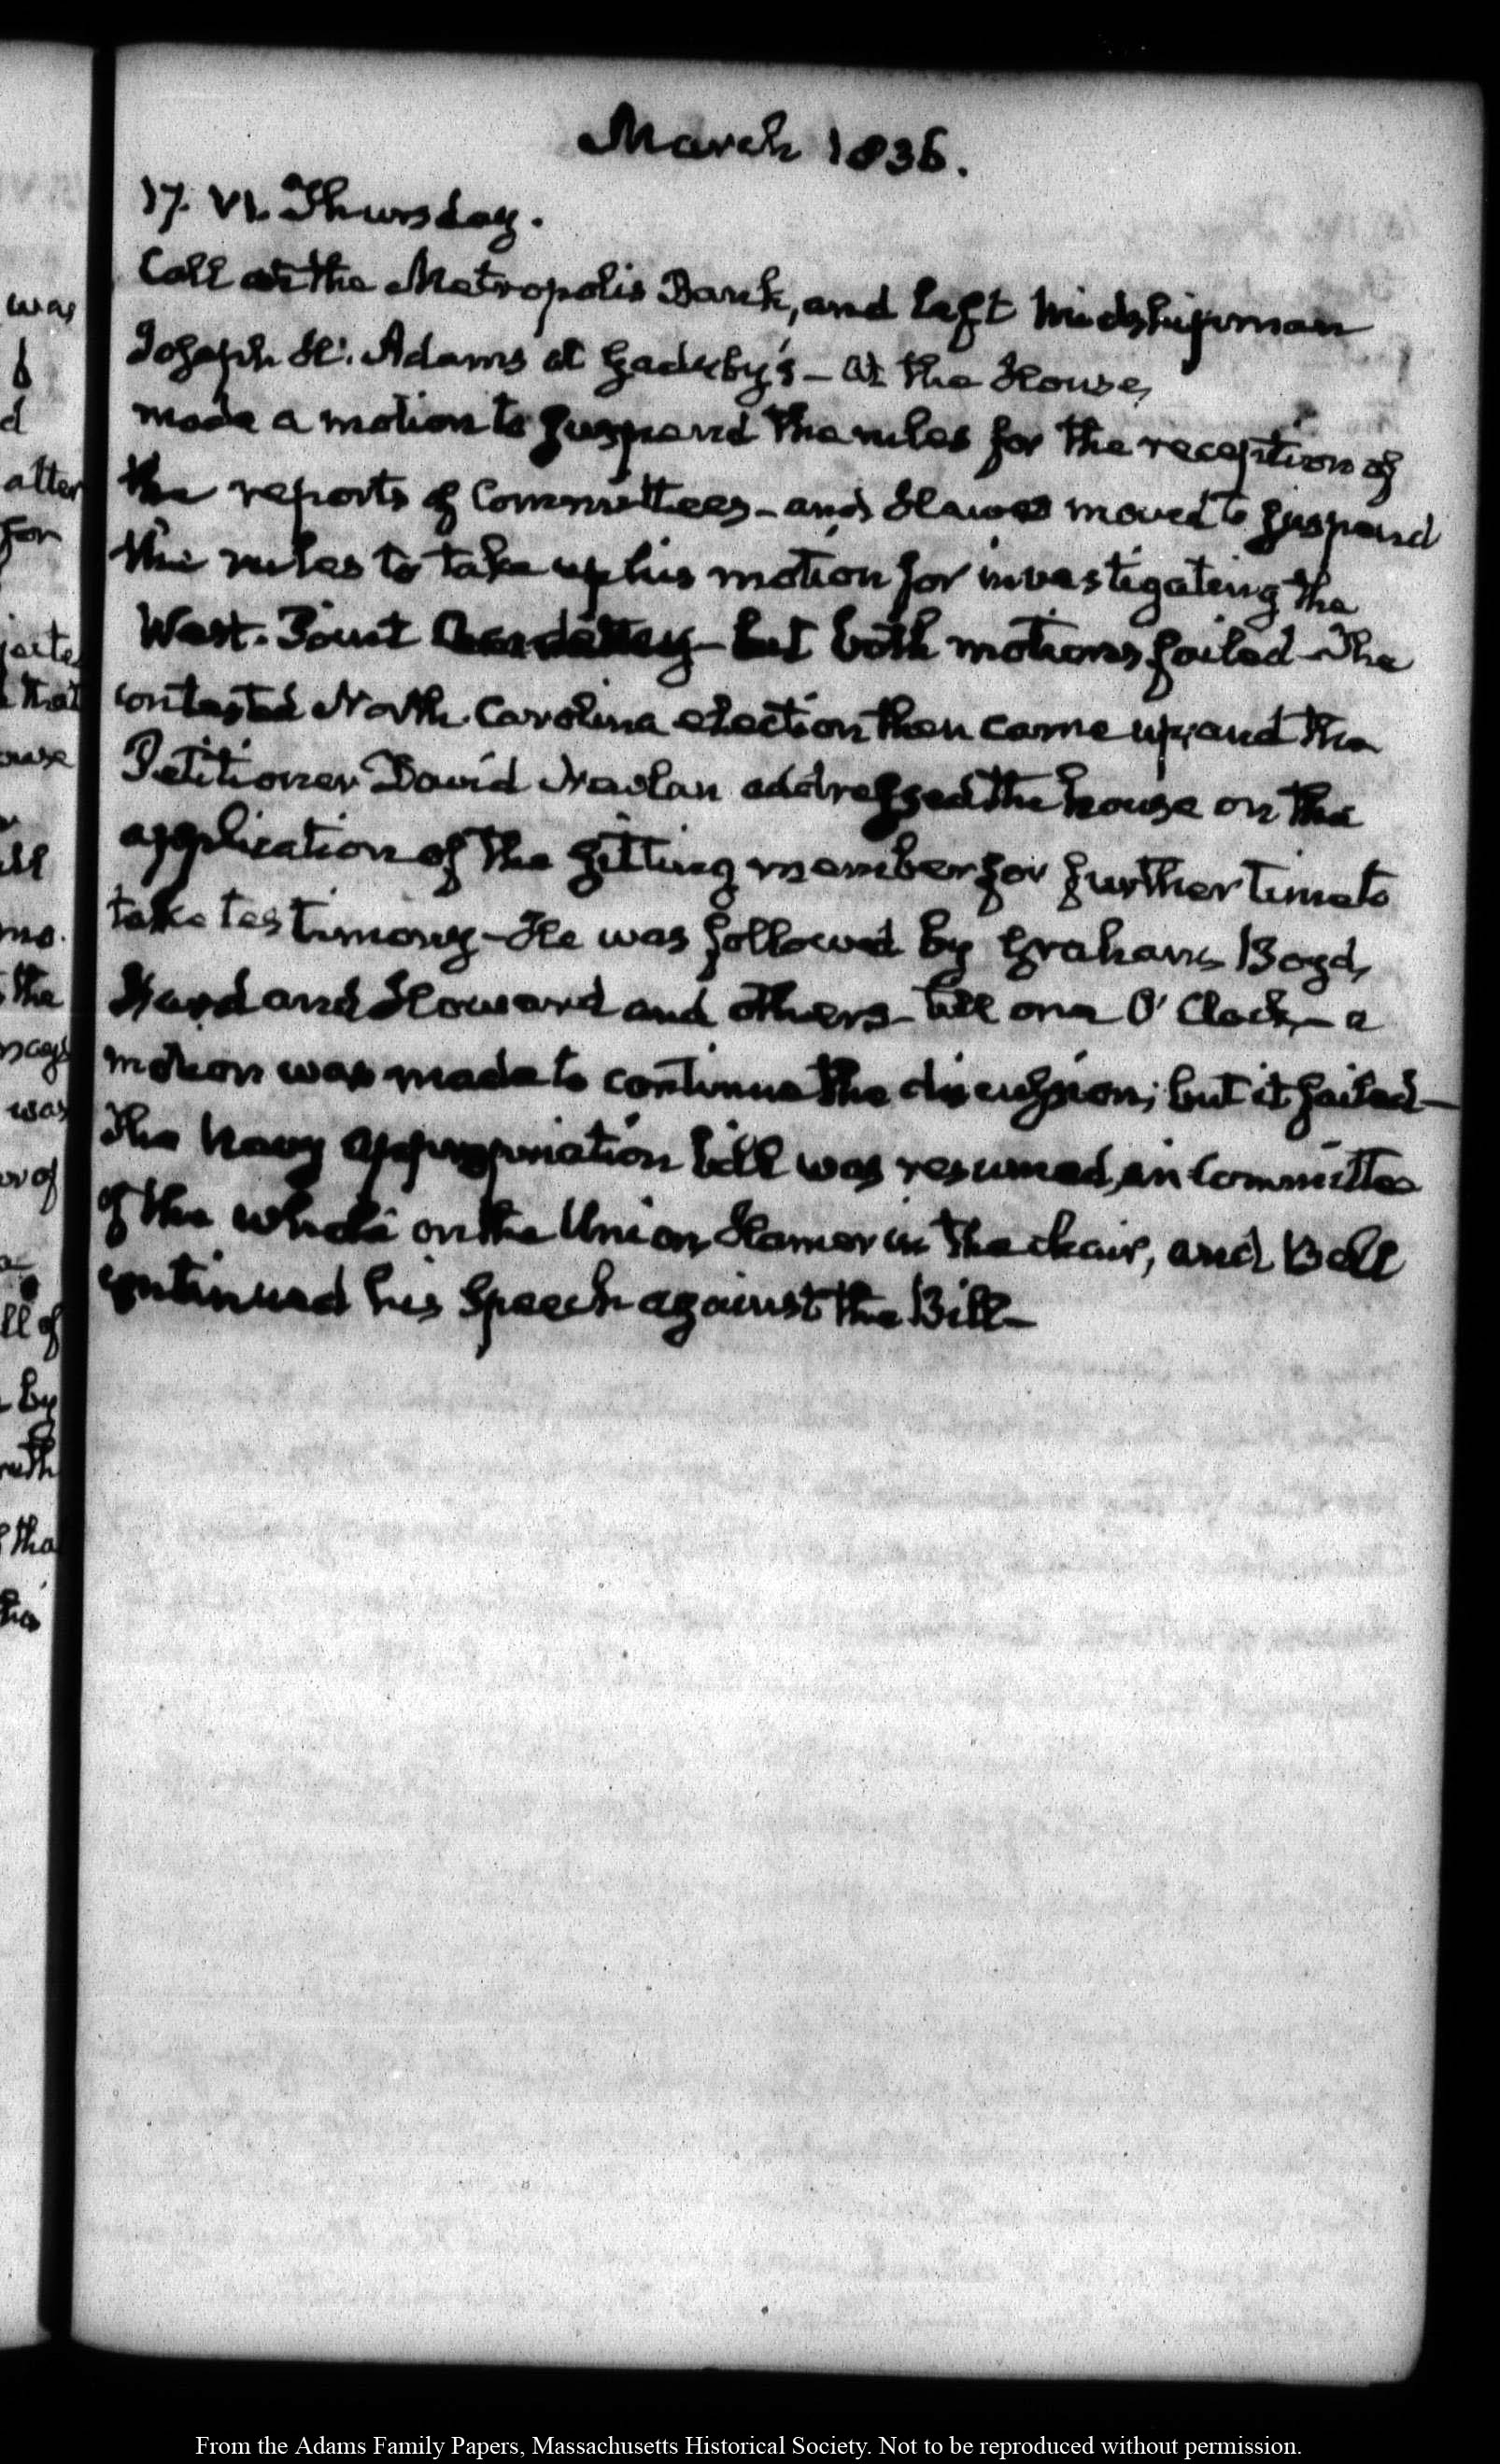 March 1836.
17. VI. Thursday.
Call at the Metropolis Bank, and left Midshipman
Joseph H. Adams at Gadsby's — At the House,
made a motion to suspend the rules for the reception of
the reports of Committees — and Hawes moved to suspend
the rules to take up his motion for investigating the
West-Point Academy — but both motions failed — The
contested North Carolina election then came up, and the
Petitioner David Newlan addressed the house on the
application of the sitting member for further time to
take testimony — He was followed by Graham, Boyd,
Hard and Howard and others — till one O'Clock — a
motion was made to continue the discussion; but it failed —
The Navy appropriation bill was resumed, in Committee
of the whole on the Union, Hamer in the chair, and Bell
continued his Speech against the Bill —
was
d
atter
for
that
the
was
of
ll of
by
the
From the Adams Family Papers, Massachusetts Historical Society. Not to be reproduced without permission.